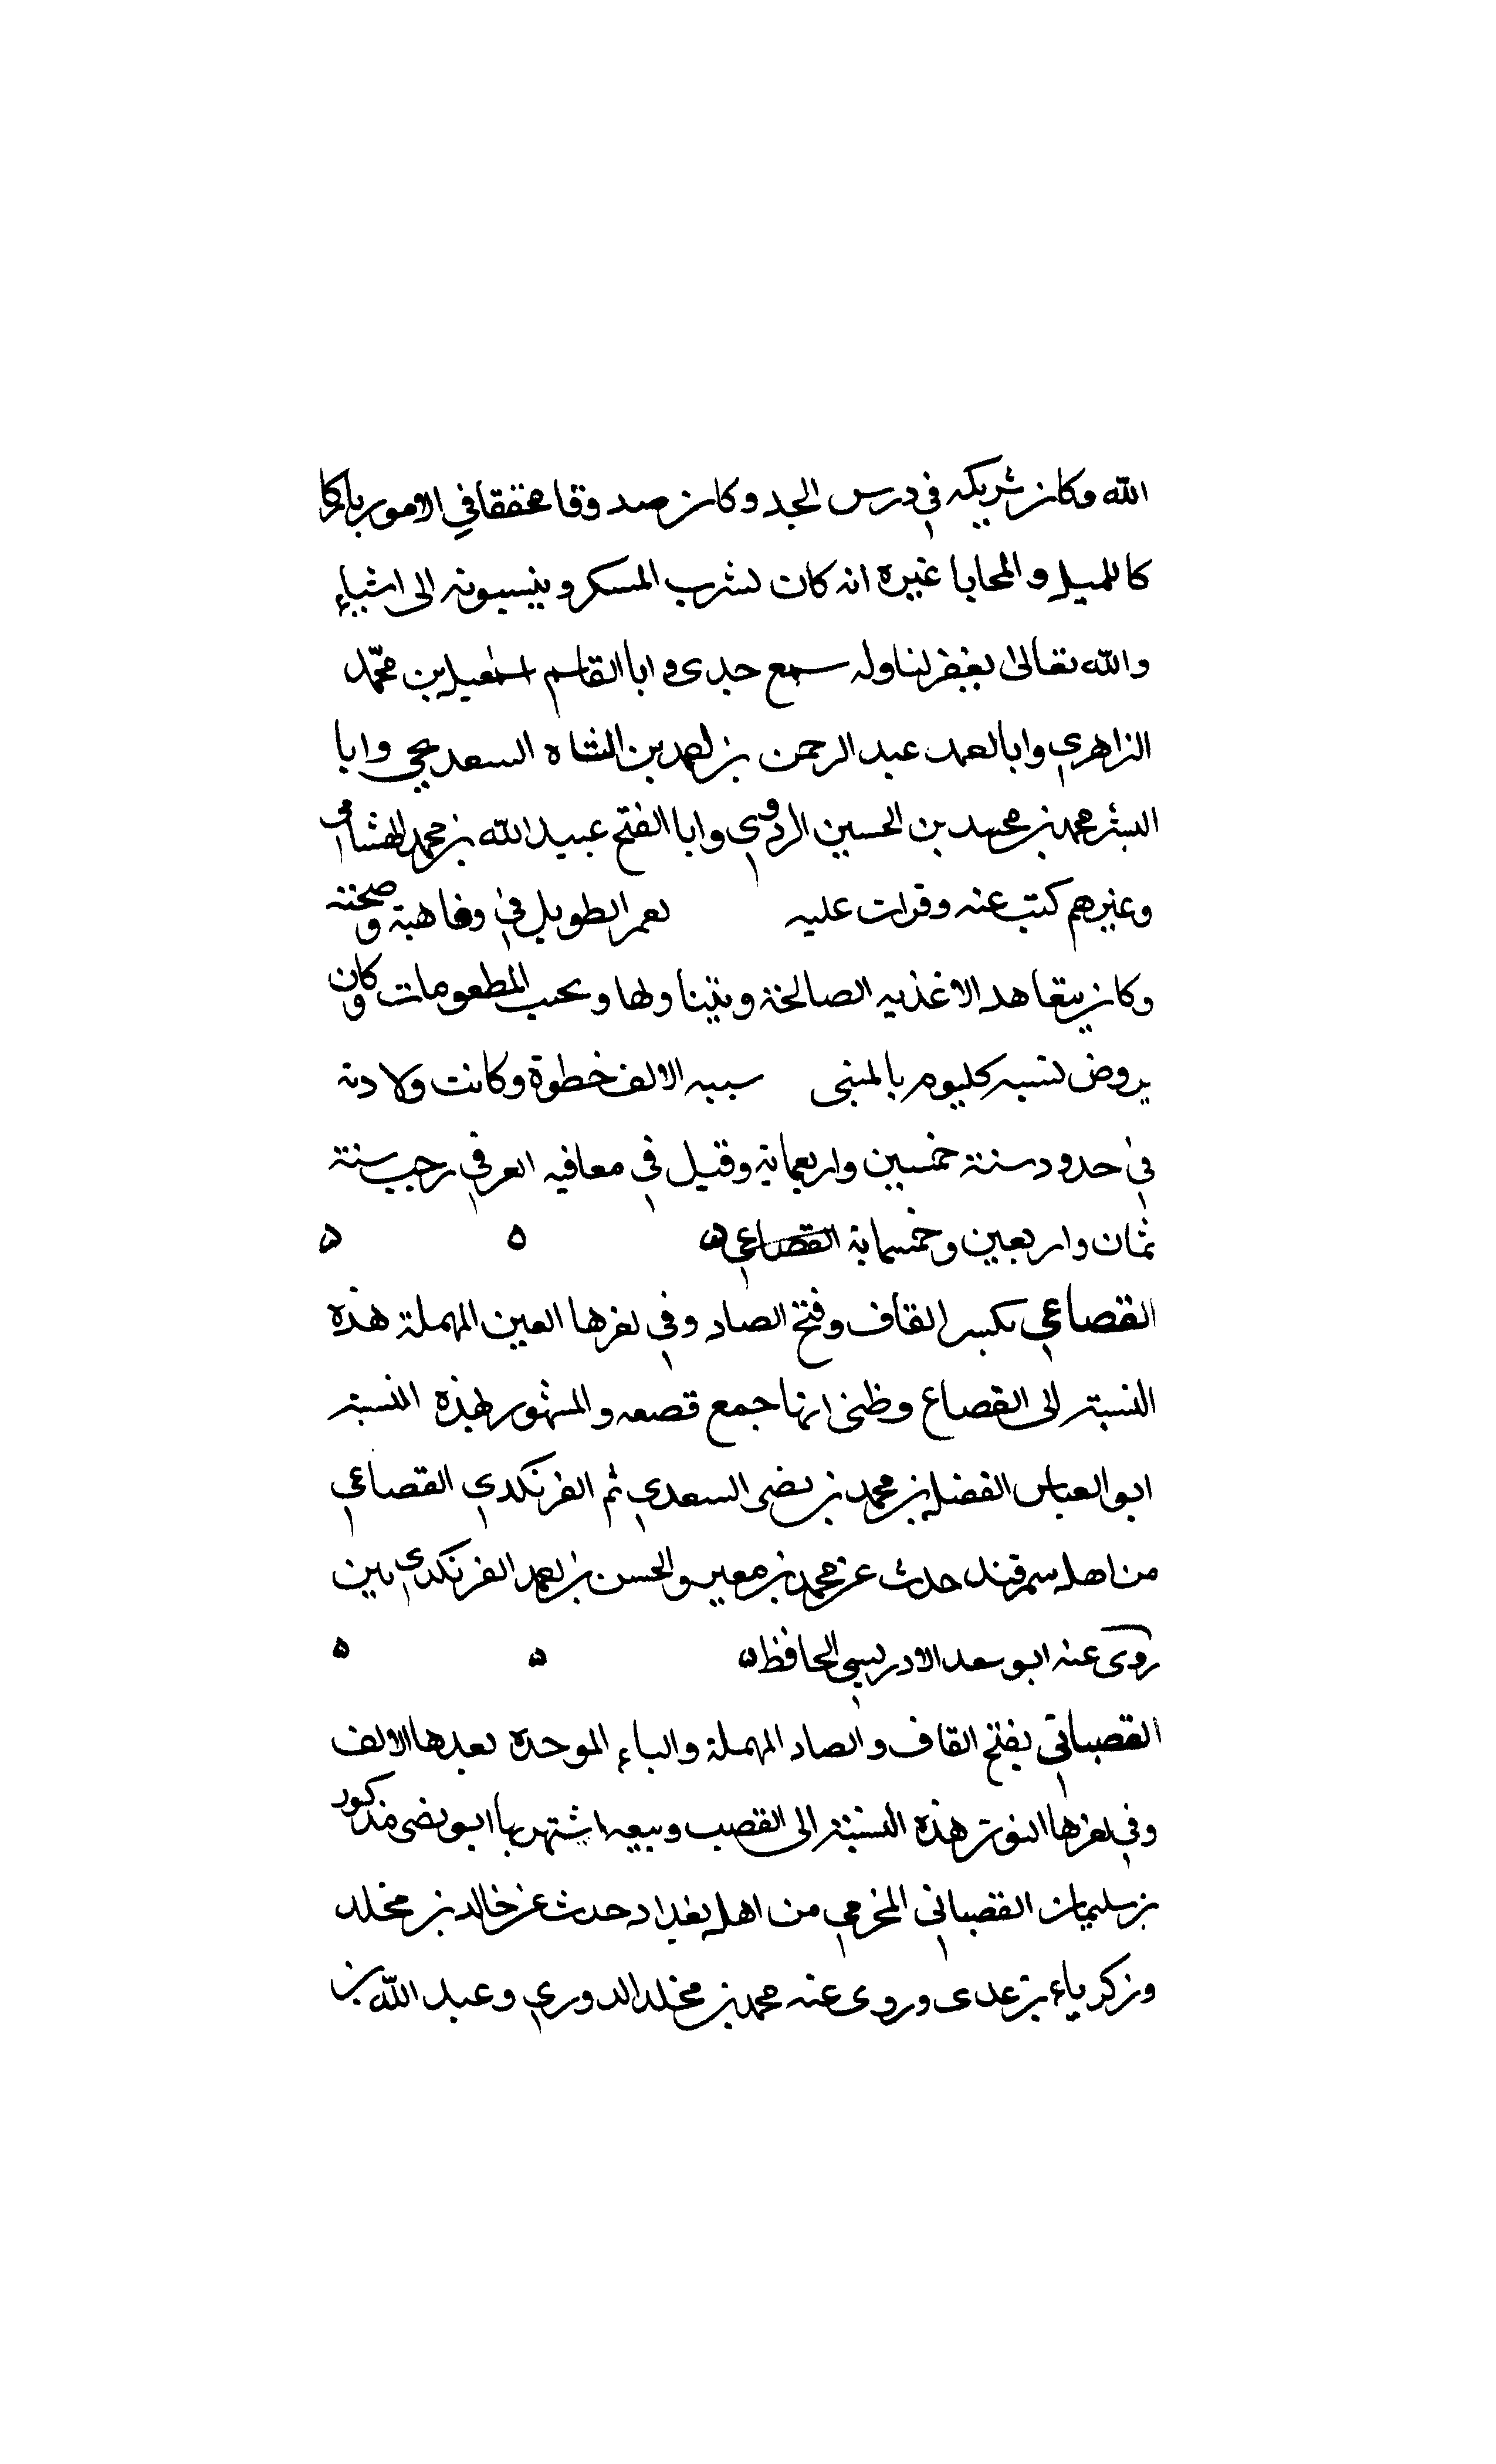 الله وكان شريكه في درس الجد وكان صدوقا محققا في الامور تاركا
كالميل والمحابا غيره انه كان يشرب المسكر وينسبونه الى اشياء
والله تعالى يغفر لنا وله سمع جدي وابا القاسم اسمعيل بن محمد
الزاهري وابا احمد عبد الرحمن بن احمد بن الشاه السعدحي وابا
البشر محمد بن محمد بن الحسين وابا الفتح عبيد الله بن محمد الهشامي
وغيرهم كتبت عنه وقرات عليه لعمر الطويل في رفاهية وصحته
وكان يتعاهد الاغذيه الصالحة ويتناولها ويحب المطعومات وكان
يروض نسبه كليوم بالمشي سببه الالف خطوة وكانت ولادته
في حدود سنة خمسين واربعماية وقتل في معاقبه الغز في رجب سنة
ثمان واربعين وخمسماية القصاعي ه ه ه
القصاعي بكسر القاف وفتح الصاد وفي اخرها العين المهملة هذه
النسبة الى القصاع وظني انها جمع قصعه والمشهور بهذه النسبة
ابو العباس الفضل بن محمد بن نصر السعدي ثم الفرنكدي القصاعي
من اهل سمرقند حدث عن محمد بن معين والحسن بن احمد الفرنكدي بين
روى عنه ابو سعد الادريسي الحافظ ه ه ه
القصباني بفتح القاف والصاد المهملة والباء الموحدة بعدها الالف
وفي اخرها النون هذه النسبة الى القصب وبيعه اشتهر بها ابو نصر مذكور
بن سليمان القصباني المخرمي من اهل بغداد حدث عن خالد بن مخلد
وزكرياء بن عدى وروى عنه محمد بن مخلد الدوري وعبد الله بن